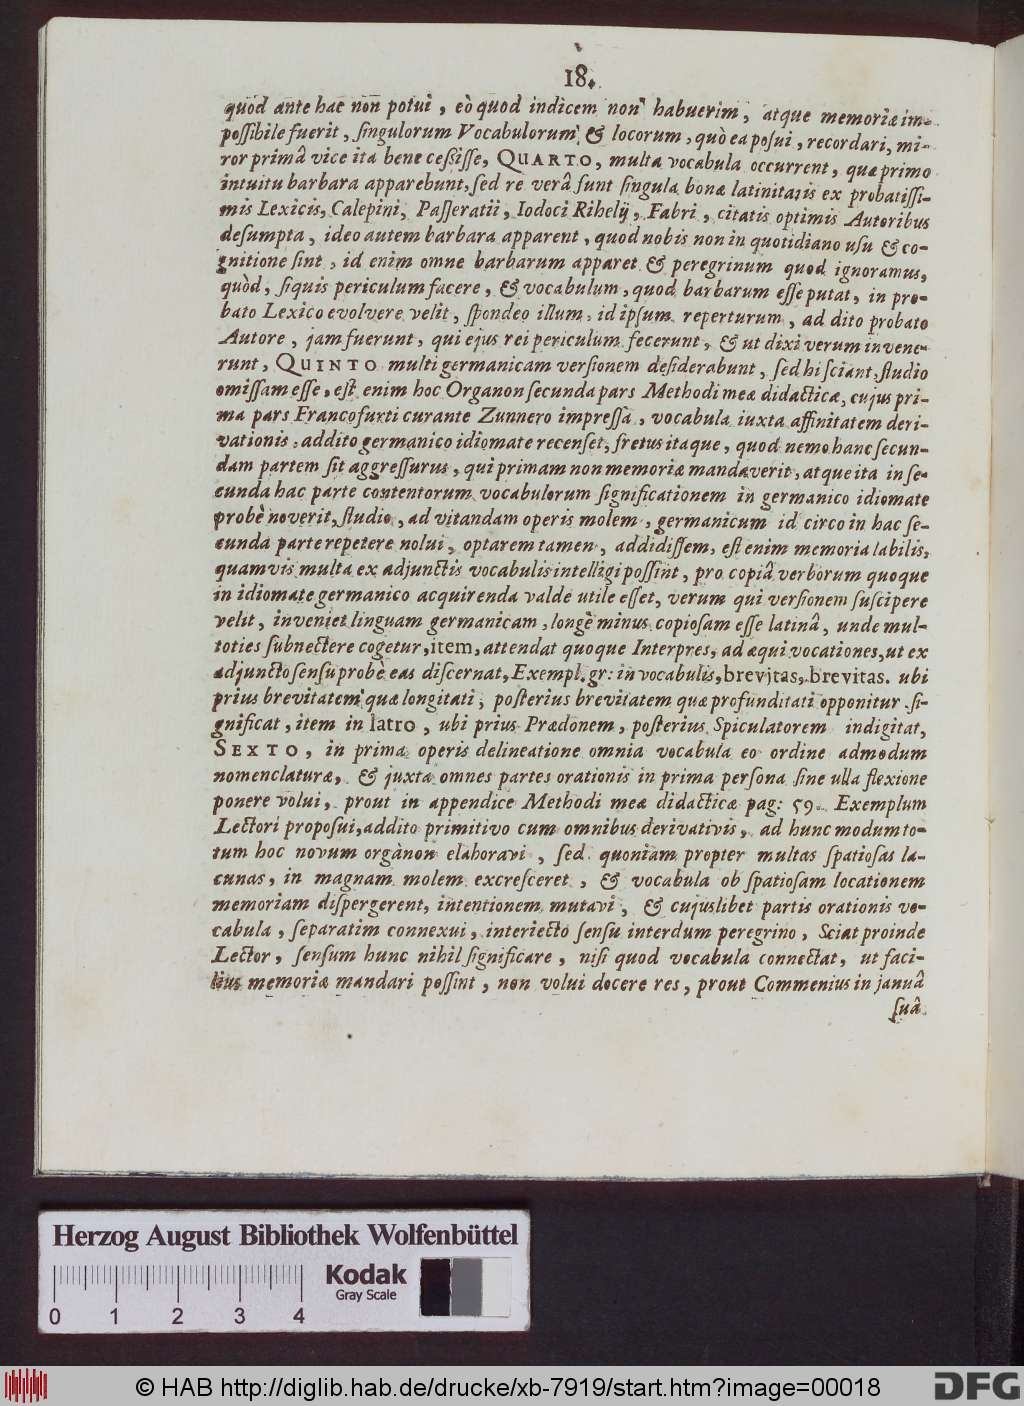 18.
quod ante hac non potui, eò quod indicem non habuerim, atque memoriæ im-
possibile fuerit, singulorum Vocabulorum & locorum, quò ea posui, recordari, mi-
ror primâ vice ita bene cessisse, QUARTO, multa vocabula occurrent, quæ primo
intuitu barbara apparebunt, sed re verâ sunt singula bonæ latinitatis ex probatissi-
mis Lexicis, Calepini, Passeratii, Iodoci Rihelij, Fabri, citatis optimis Autoribus
desumpta, ideo autem barbara apparent, quod nobis non in quotidiano usu & co-
gnitione sint, id enim omne barbarum apparet & peregrinum quod ignoramus,
quòd, si quis periculum facere, & vocabulum, quod barbarum esse putat, in pro-
bato Lexico evolvere velit, spondeo illum, id ipsum reperturum, ad dito probato
Autore, jam fuerunt, qui ejus rei periculum fecerunt, & ut dixi verum invene-
runt, QUINTO multi germanicam versionem desiderabunt, sed hi sciant, studio
omissam esse, est enim hoc Organon secunda pars Methodi meæ didacticæ, cujus pri-
ma pars Francofurti curante Zunnero impressa, vocabula iuxta affinitatem deri-
vationis, addito germanico idiomate recenset, fretus itaque, quod nemo hanc secun-
dam partem sit aggressurus, qui primam non memoriæ mandaverit, atque ita in se-
cunda hac parte contentorum vocabulorum significationem in germanico idiomate
probè noverit, studio, ad vitandam operis molem, germanicum id circo in hac se-
cunda parte repetere nolui, optarem tamen, addidissem, est enim memoria labilis,
quamvis multa ex adjunctis vocabulis intelligi possint, pro copiâ verborum quoque
in idiomate germanico acquirenda valde utile esset, verum qui versionem suscipere
velit, inveniet linguam germanicam, longè minus copiosam esse latinâ, unde mul-
toties subnectere cogetur, item, attendat quoque Interpres, ad æqui vocationes, ut ex
adjuncto sensu probè eas discernat, Exempl. gr: in vocabulis, brevitas, brevitas. ubi
prius brevitatem quæ longitati, posterius brevitatem quæ profunditati opponitur si-
gnificat, item in latro, ubi prius Prædonem, posterius Spiculatorem indigitat,
SEXTO, in prima operis delineatione omnia vocabula eo ordine admodum
nomenclaturæ, & juxta omnes partes orationis in prima persona sine ulla flexione
ponere volui, prout in appendice Methodi meæ didacticæ pag: 59. Exemplum
Lectori proposui, addito primitivo cum omnibus derivativis, ad hunc modum to-
tum hoc novum orgànon elaboravi, sed quoniam propter multas spatiosas la-
cunas, in magnam molem excresceret, & vocabula ob spatiosam locationem
memoriam dispergerent, intentionem mutavi, & cujuslibet partis orationis vo-
cabula, separatim connexui, interiecto sensu interdum peregrino, Sciat proinde
Lector, sensum hunc nihil significare, nisi quod vocabula connectat, ut faci-
lius memoriæ mandari possint, non volui docere res, prout Commenius in januâ
suâ
Herzog August Bibliothek Wolfenbüttel
Kodak
Gray Scale
0 1 2 3 4
© HAB http://diglib.hab.de/drucke/xb-7919/start.htm?image=00018
DFG